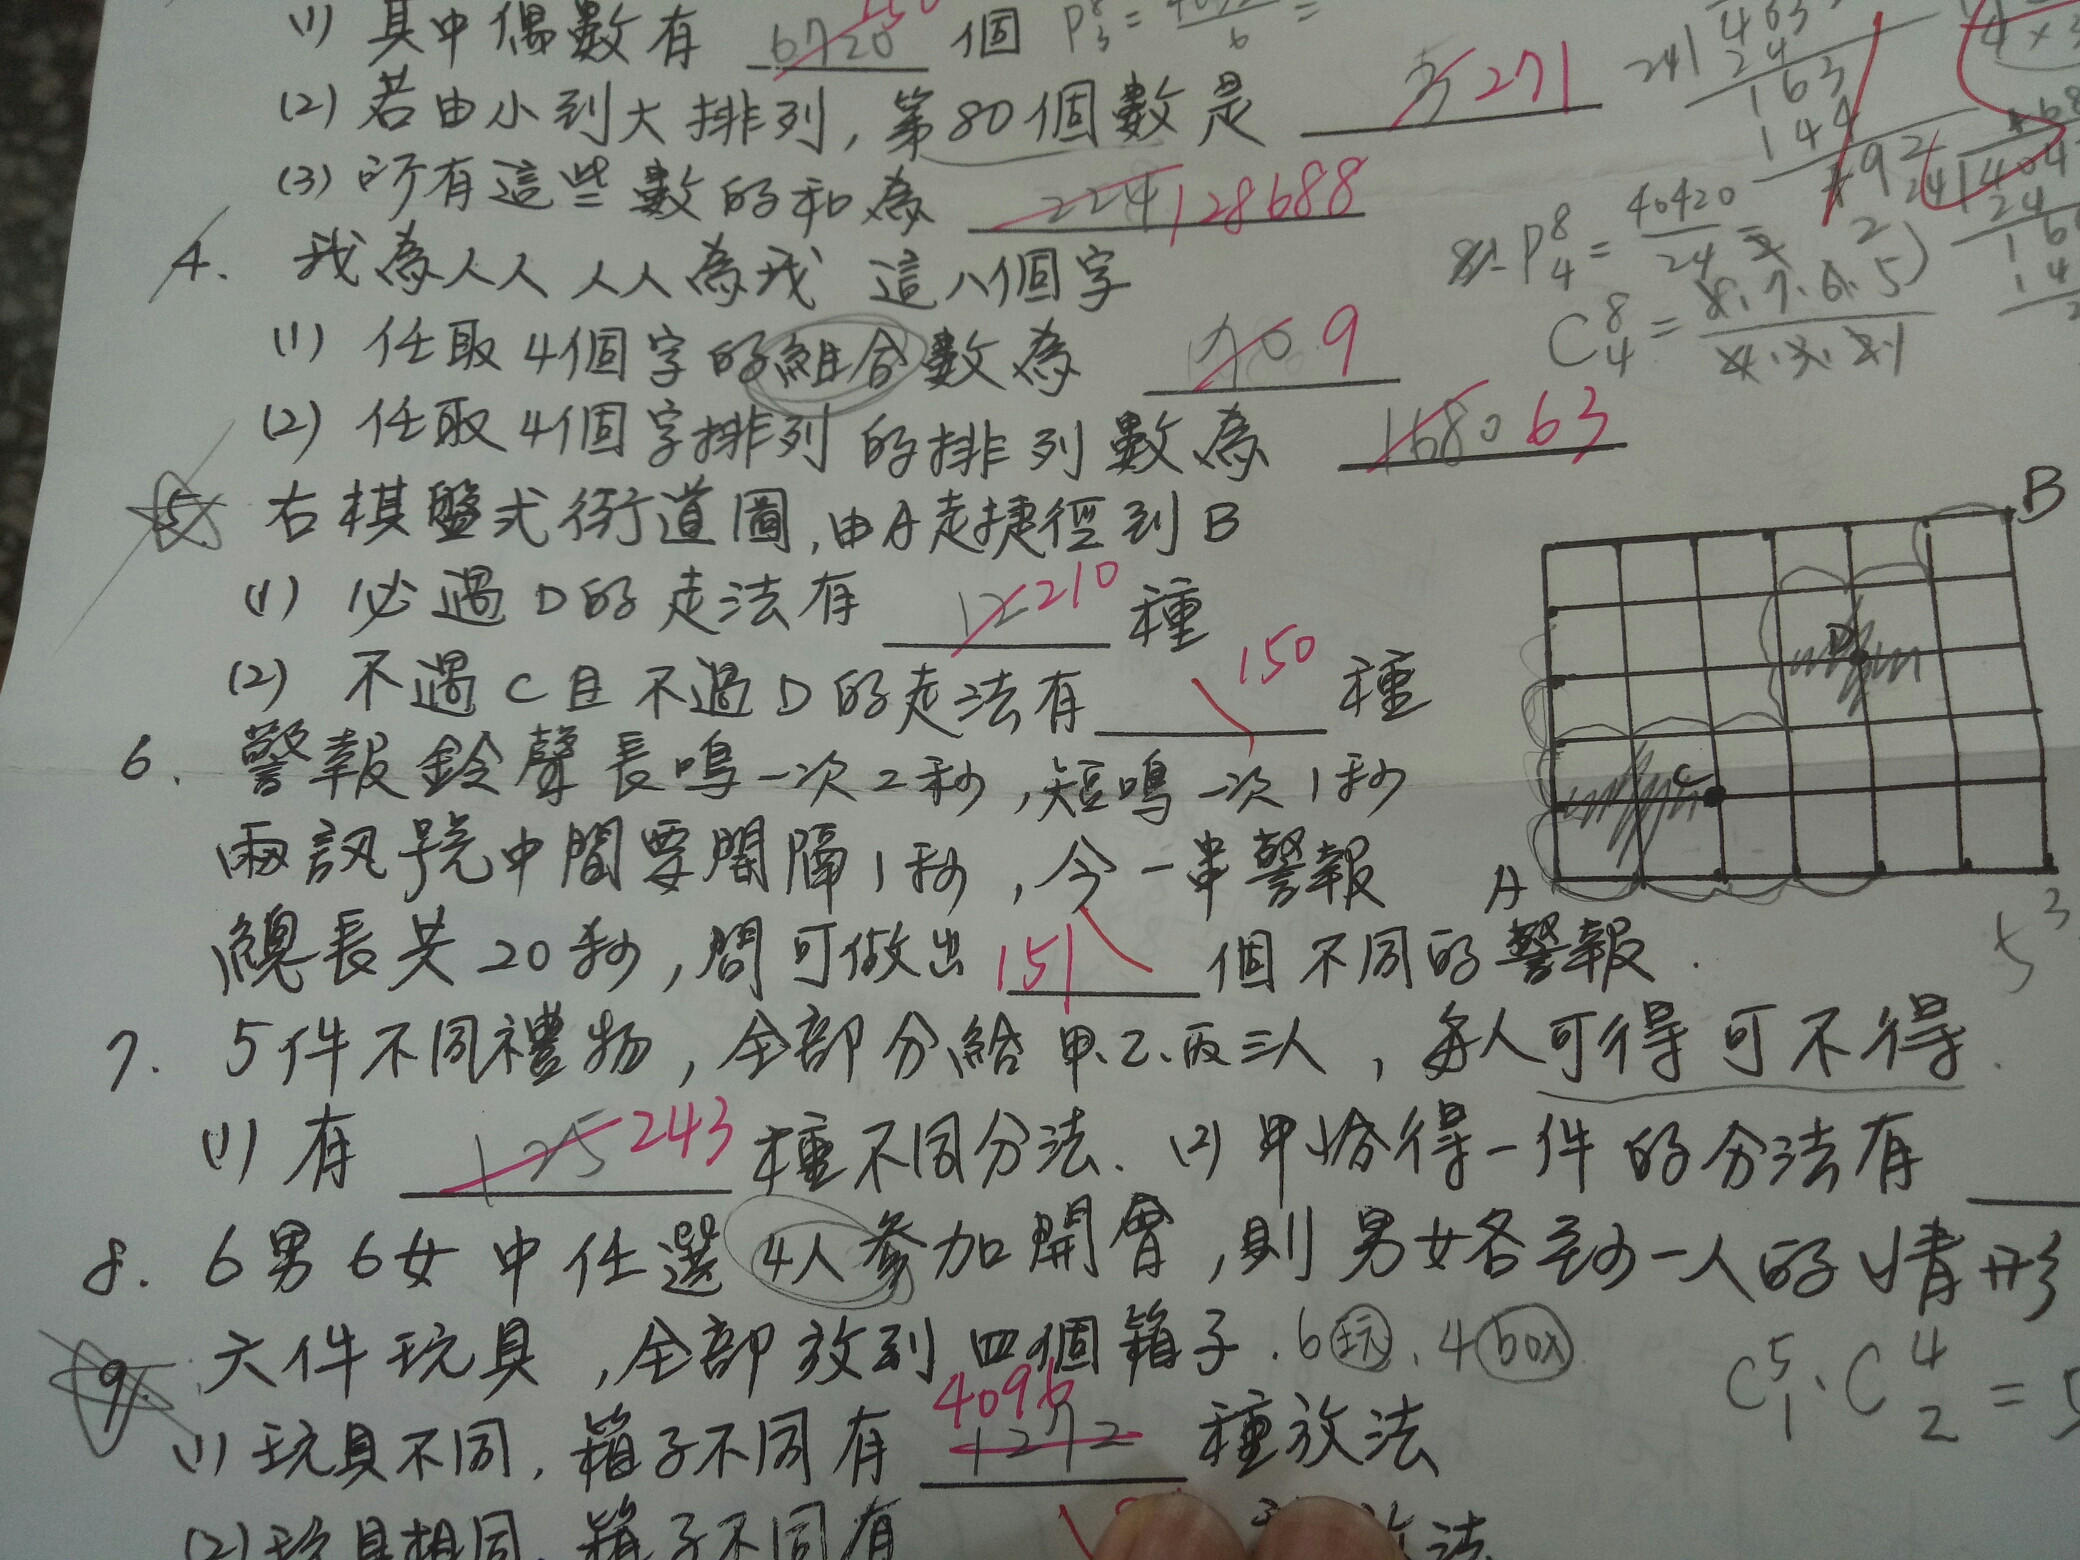 (1) 其中偶數有 6720 150 個 P⁸₃ =
(2) 若由小到大排列, 第80個數是 271
(3) 所有這些數的和為 224 128688
4. 我為人人 人人為我 這八個字
(1) 任取4個字的組合數為 9
(2) 任取4個字排列的排列數為 1680 63
P⁸₄ = 40420/24
C⁸₄ = 8.7.6.5/4.3.2.1
5. 右棋盤式街道圖,由A走捷徑到B
(1) 必過D的走法有 12 210 種
(2) 不過C且不過D的走法有 150 種
B
D
C
A
6. 警報鈴聲長鳴一次2秒,短鳴一次1秒
兩訊號中間要間隔1秒,今一串警報
總長共20秒,問可做出 151 個不同的警報.
5³
7. 5件不同禮物,全部分給甲.乙.丙三人,每人可得可不得.
(1) 有 125 243 種不同分法. (2) 甲恰得一件的分法有
8. 6男6女中任選4人參加開會,則男女各至少一人的情形
9. 六件玩具,全部放到四個箱子. 6玩. 4box
(1) 玩具不同,箱子不同有 1272 4096 種放法
C⁵₁ · C⁴₂ =
(2) 玩具相同,箱子不同有 放法